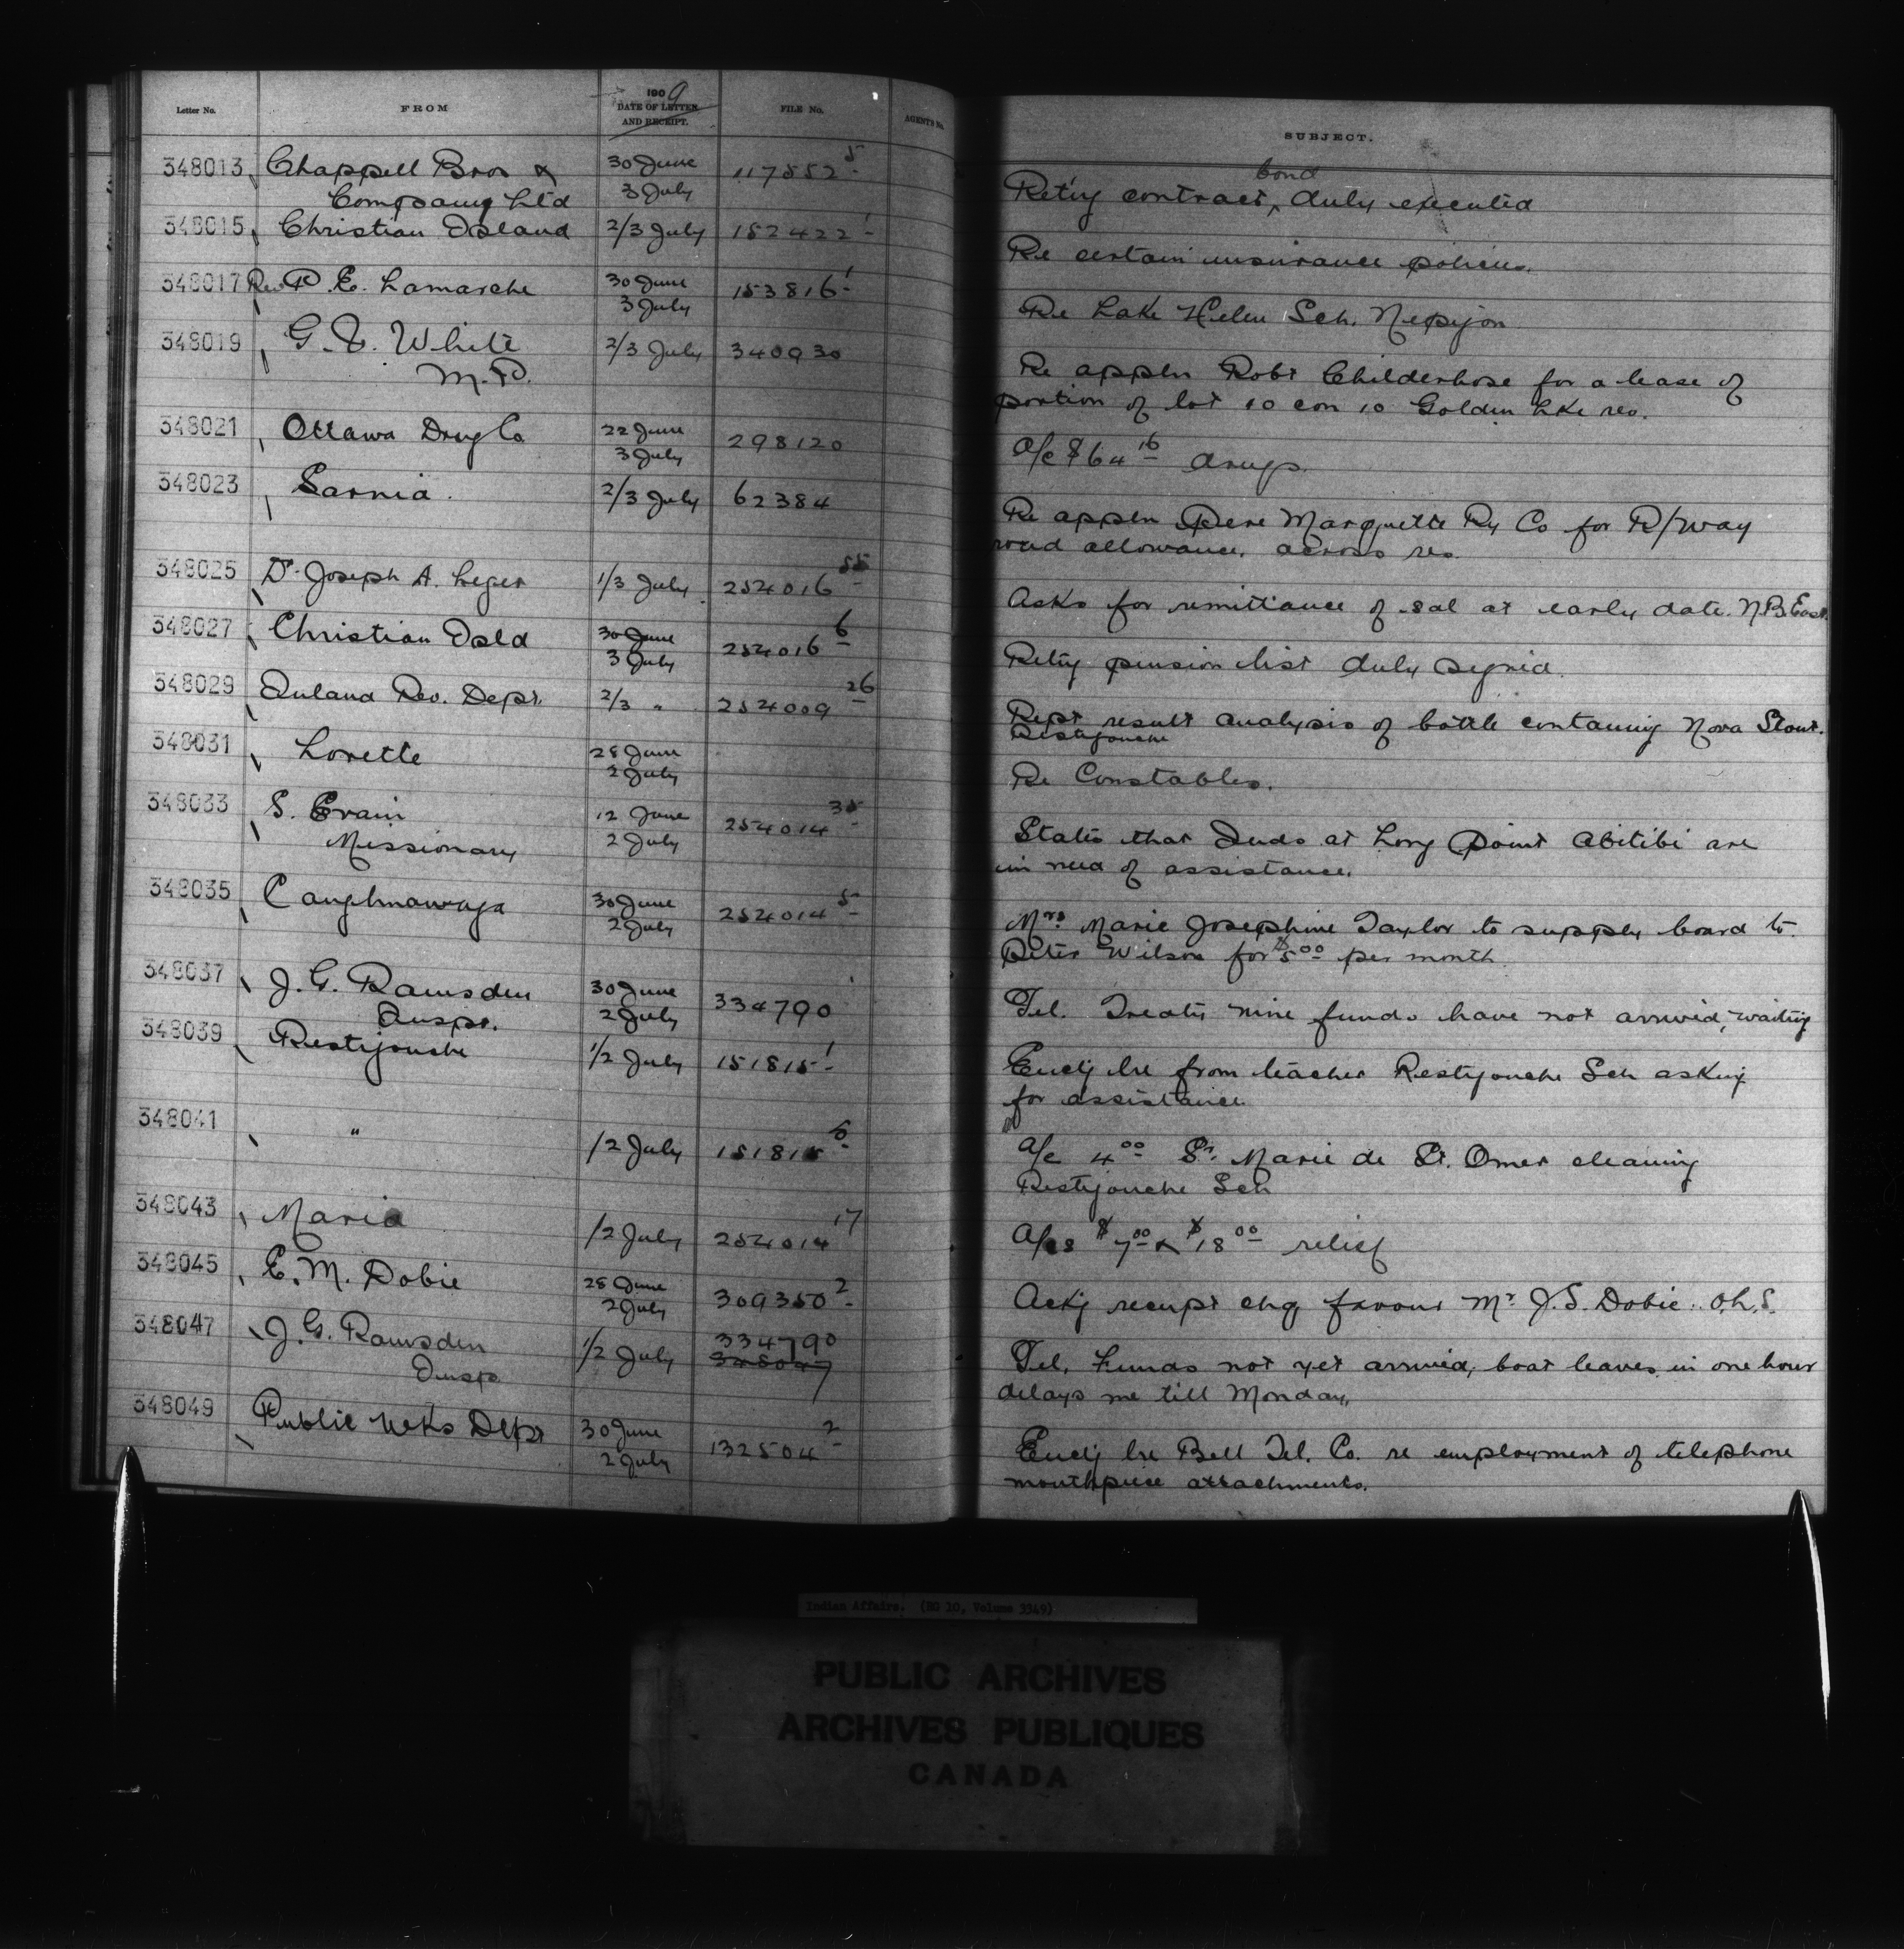 Letter No. FROM 1909 DATE OF LETTER AND RECEIPT. FILE No. AGENT'S No. SUBJECT.
348013 Chappell Bros & 30 June 117552 5 bond
Company Ltd 3 July Retg contract, duly executed
348015 Christian Island 2/3 July 152422 1 Re certain insurance policies.
348017 Rev P. E. Lamarche 30 June 153816 1
3 July Re Lake Helen Sch. Nepigon
348019 G. V. White 2/3 July 340930 Re appln Robt Childerhose for a lease of
M.P. portion of lot 10 con 10 Golden Lke res.
348021 Ottawa Drug Co 22 June 298120
3 July A/c $64 16 drugs.
348023 Sarnia. 2/3 July 62384 Re appln Pere Marquette Ry Co for R/way
road allowance, across res.
348025 Dr Joseph A. Leger 1/3 July. 254016 55 Asks for remittance of sal at early date. N.B. East.
348027 Christian Isld 30 June 254016 6
3 July Retg pension list duly signed.
348029 Inland Rev. Dept. 2/3 " 254009 26 Rept result analysis of bottle containing Nova Stout.
Restigouche
348031 Lorette 28 June
2 July Re Constables.
348033 S. Evain 12 June 254014 35 States that Inds at Long Point Abitibi are
Missionary 2 July in need of assistance.
348035 Caughnawaga 30 June 254014 5 Mrs. Marie Josephine Taylor to supply board to
2 July Peter Wilson for $5 00 per month
348037 J. G. Ramsden 30 June 334790
Inspr. 2 July Tel. Treaty nine funds have not arrived, waiting
348039 Restigouche 1/2 July 151815 1 Encg lre from teacher Restigouche Sch asking
for assistance
348041 " 1/2 July 151815 5 A/c 4 00 Sr. Marie de St. Omer cleaning
Restigouche Sch
348043 Maria 1/2 July 254014 17 A/cs $7 00 & $18 00 relief
348045 E. M. Dobie 28 June 309350 2
2 July Ackg receipt chq favour Mr. J. S. Dobie. O.L.S.
348047 J. G. Ramsden 1/2 July 334790 Tel. Funds not yet arrived, boat leaves in one hour
Insp. 348047 delays me till Monday.
348049 Public Wks Dept 30 June 132504 2 Encg lre Bell Tel. Co. re employment of telephone
2 July mouthpiece attachments.
Indian Affairs. (RG 10, Volume 3349)
PUBLIC ARCHIVES
ARCHIVES PUBLIQUES
CANADA